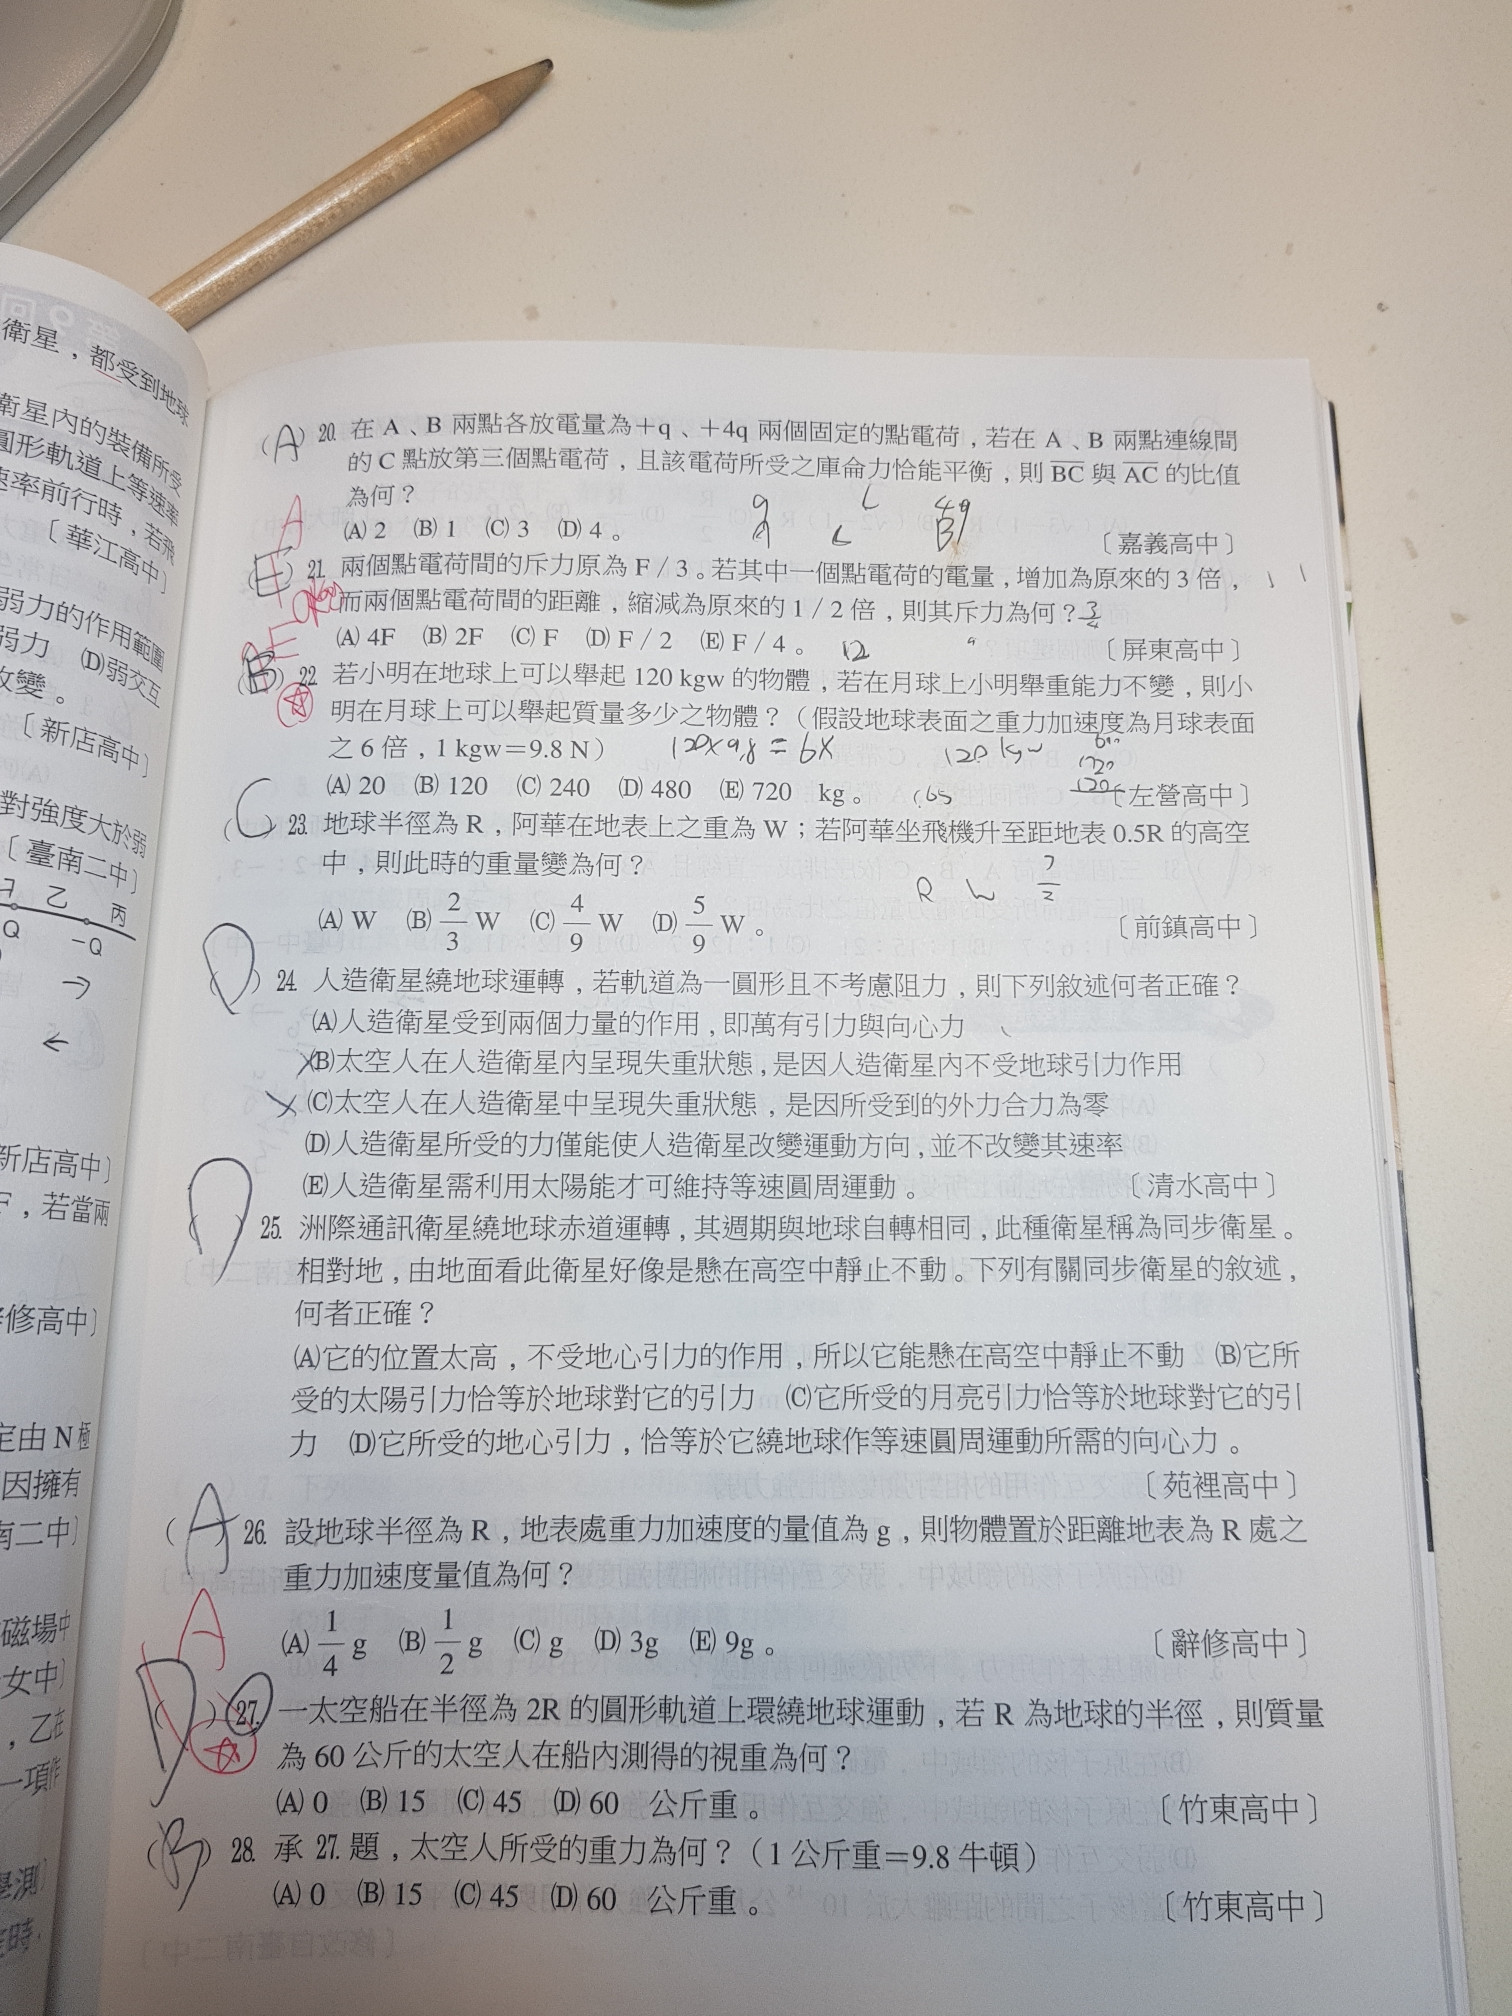 衛星，都受到地球
衛星內的裝備所受
圓形軌道上等速率
速率前行時，若飛
〔華江高中〕
弱力的作用範圍
弱力 (D)弱交互
改變。
〔新店高中〕
對強度大於弱
〔臺南二中〕
乙 丙
Q -Q
→
←
新店高中〕
F，若當兩
修高中〕
定由 N 極
因擁有
南二中〕
磁場中
女中〕
，乙在
一項作
(A) 20. 在 A、B 兩點各放電量為+q、+4q 兩個固定的點電荷，若在 A、B 兩點連線間
的 C 點放第三個點電荷，且該電荷所受之庫侖力恰能平衡，則 BC 與 AC 的比值
為何？
(A) 2 (B) 1 (C) 3 (D) 4。 〔嘉義高中〕
4q
B
A
(E) 21. 兩個點電荷間的斥力原為 F / 3。若其中一個點電荷的電量，增加為原來的 3 倍，
而兩個點電荷間的距離，縮減為原來的 1 / 2 倍，則其斥力為何？
(A) 4F (B) 2F (C) F (D) F / 2 (E) F / 4。 12 〔屏東高中〕
E
(B) 22. 若小明在地球上可以舉起 120 kgw 的物體，若在月球上小明舉重能力不變，則小
明在月球上可以舉起質量多少之物體？（假設地球表面之重力加速度為月球表面
之 6 倍，1 kgw＝9.8 N） 120×9.8 = 6X 120 kgw
(A) 20 (B) 120 (C) 240 (D) 480 (E) 720 kg。 〔左營高中〕
(C) 23. 地球半徑為 R，阿華在地表上之重為 W；若阿華坐飛機升至距地表 0.5R 的高空
中，則此時的重量變為何？
R W
(A) W (B) 2/3 W (C) 4/9 W (D) 5/9 W。 〔前鎮高中〕
(D) 24. 人造衛星繞地球運轉，若軌道為一圓形且不考慮阻力，則下列敘述何者正確？
(A)人造衛星受到兩個力量的作用，即萬有引力與向心力
(B)太空人在人造衛星內呈現失重狀態，是因人造衛星內不受地球引力作用
(C)太空人在人造衛星中呈現失重狀態，是因所受到的外力合力為零
(D)人造衛星所受的力僅能使人造衛星改變運動方向，並不改變其速率
(E)人造衛星需利用太陽能才可維持等速圓周運動。 〔清水高中〕
(D) 25. 洲際通訊衛星繞地球赤道運轉，其週期與地球自轉相同，此種衛星稱為同步衛星。
相對地，由地面看此衛星好像是懸在高空中靜止不動。下列有關同步衛星的敘述，
何者正確？
(A)它的位置太高，不受地心引力的作用，所以它能懸在高空中靜止不動 (B)它所
受的太陽引力恰等於地球對它的引力 (C)它所受的月亮引力恰等於地球對它的引
力 (D)它所受的地心引力，恰等於它繞地球作等速圓周運動所需的向心力。
〔苑裡高中〕
(A) 26. 設地球半徑為 R，地表處重力加速度的量值為 g，則物體置於距離地表為 R 處之
重力加速度量值為何？
(A) 1/4 g (B) 1/2 g (C) g (D) 3g (E) 9g。 〔辭修高中〕
A
(D) 27. 一太空船在半徑為 2R 的圓形軌道上環繞地球運動，若 R 為地球的半徑，則質量
為 60 公斤的太空人在船內測得的視重為何？
(A) 0 (B) 15 (C) 45 (D) 60 公斤重。 〔竹東高中〕
(B) 28. 承 27. 題，太空人所受的重力為何？（1 公斤重＝9.8 牛頓）
(A) 0 (B) 15 (C) 45 (D) 60 公斤重。 〔竹東高中〕